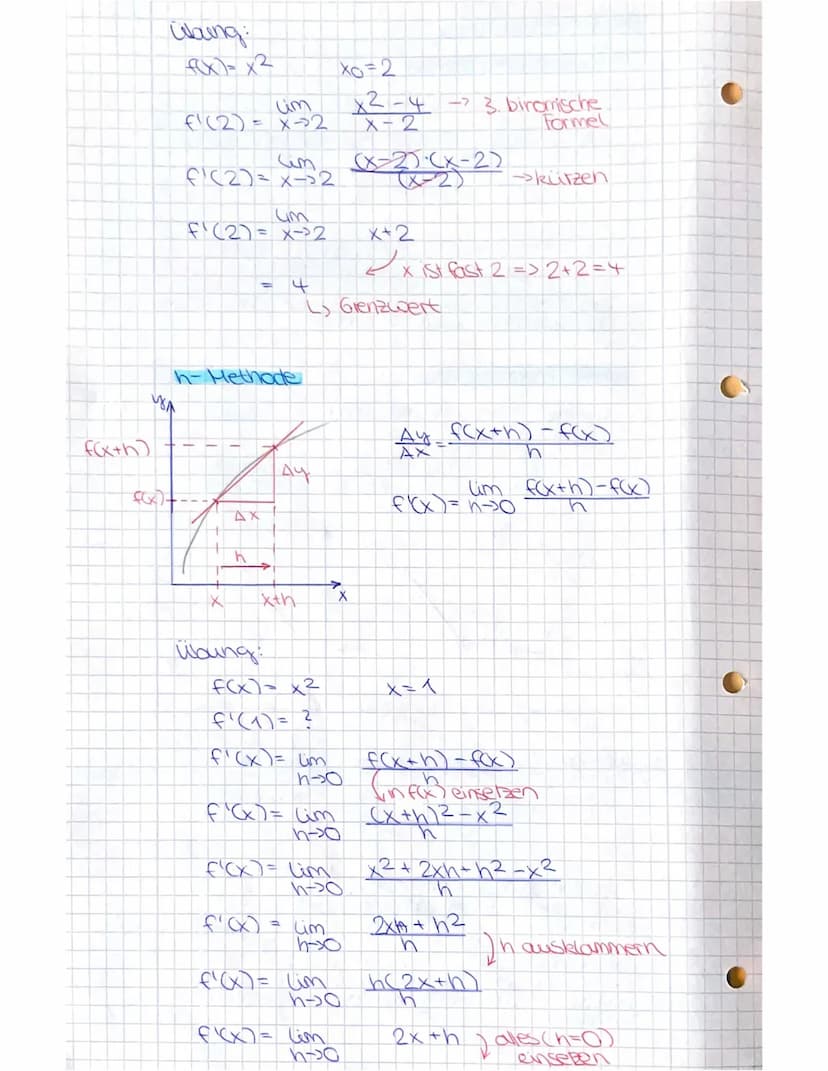 Übung:
f(x) = x² x₀ = 2
f'(2) = lim x→2 (x² - 4)/(x - 2) → 3. binomische Formel
f'(2) = lim x→2 ((x-2)·(x-2))/(x-2) → kürzen
f'(2) = lim x→2 x+2
x ist fast 2 => 2+2=4
= 4
↳ Grenzwert
h-Methode
y
f(x+h)
f(x)
Δy
Δx
h
x x+h x
Δy/Δx = (f(x+h) - f(x))/h
f'(x) = lim h→0 (f(x+h) - f(x))/h
Übung:
f(x) = x² x = 1
f'(1) = ?
f'(x) = lim h→0 (f(x+h) - f(x))/h
in f(x) einsetzen
f'(x) = lim h→0 ((x+h)² - x²)/h
f'(x) = lim h→0 (x² + 2xh + h² - x²)/h
f'(x) = lim h→0 (2xh + h²)/h
h ausklammern
f'(x) = lim h→0 h(2x+h)/h
f'(x) = lim h→0 2x+h alles (h=0) einsetzen